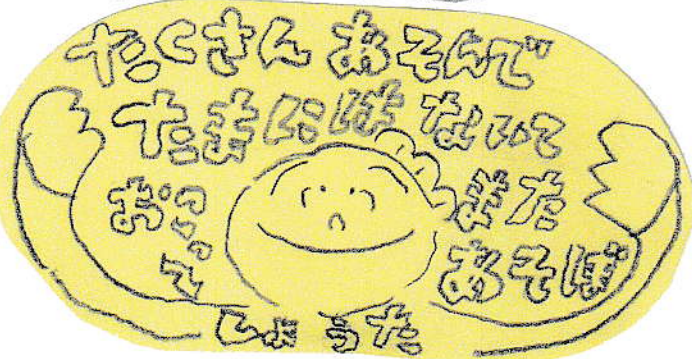 たくさん あそんで
たまには ないて
おこって
また
あそぼ
しょうた